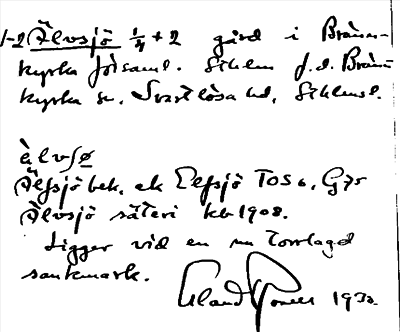 1-2 Älvsjö 1/4 + 2 gård i Bränn-
kyrkaförsaml. Sthlm f.d. Bränn
kyrka sn, Svartlösa hd, Sthlms l.
älvsø
Älfsjö bek. ek Elfsjö TOS 6, G75
Älvsjö säteri kb 1908.
Ligger vid en nu torrlagd
sankmark.
Erland 193